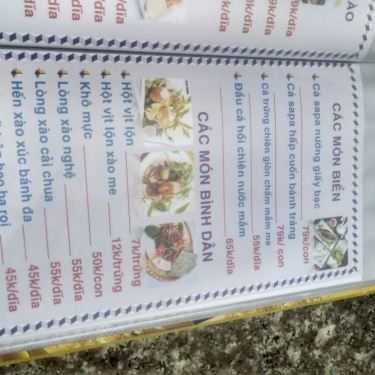 CÁC MÓN BIỂN
Cá sapa nướng giấy bạc 79k/con
Cá sapa hấp cuốn bánh tráng 79k/con
Cá trứng chiên giòn chấm mắm me 55k/dĩa
Đầu cá hồi chiên nước mắm 65k/dĩa
CÁC MÓN BÌNH DÂN
Hột vịt lộn 7k/trứng
Hột vịt lộn xào me 12k/trứng
Khô mực 50k/con
Lòng xào nghệ 55k/dĩa
Lòng xào cải chua 55k/dĩa
Hến xào xúc bánh đa 45k/dĩa
45k/dĩa